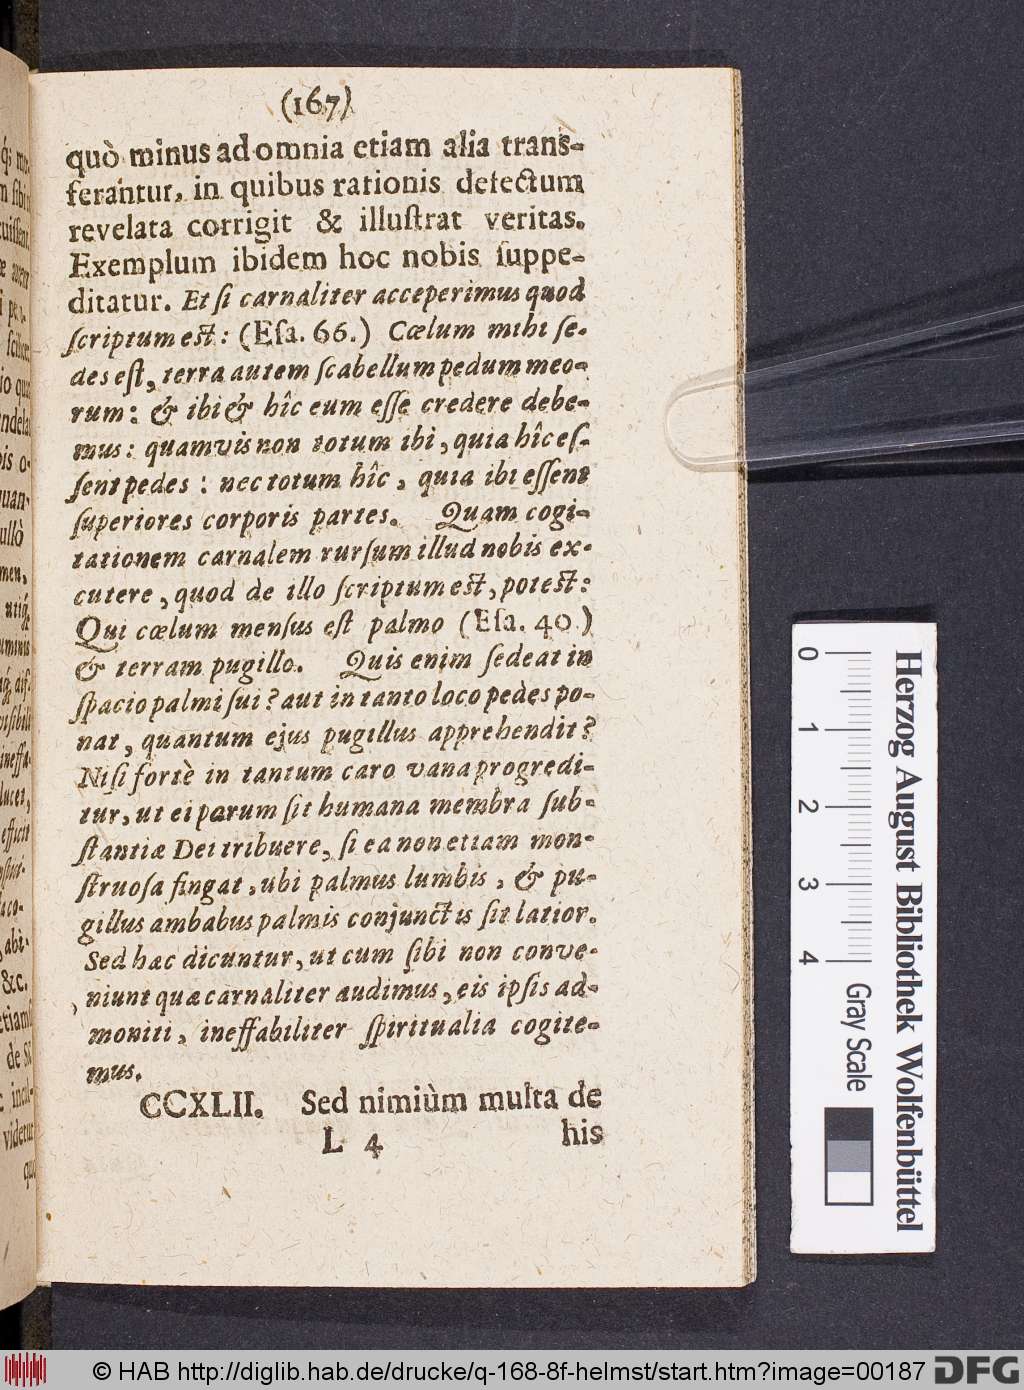 (167)
quò minus ad omnia etiam alia trans-
ferantur, in quibus rationis defectum
revelata corrigit & illuſtrat veritas.
Exemplum ibidem hoc nobis ſuppe-
ditatur. Et ſi carnaliter acceperimus quod
ſcriptum eſt: (Eſa. 66.) Cœlum mihi ſe-
des eſt, terra autem ſcabellum pedum meo-
rum: & ibi & hîc eum eſſe credere debe-
mus: quamvis non totum ibi, quia hîc eſ-
ſent pedes: nec totum hîc, quia ibi eſſent
ſuperiores corporis partes. Quam cogi-
tationem carnalem rurſum illud nobis ex-
cutere, quod de illo ſcriptum eſt, poteſt:
Qui cœlum menſus eſt palmo (Eſa. 40.)
& terram pugillo. Quis enim ſedeat in
ſpacio palmi ſui? aut in tanto loco pedes po-
nat, quantum ejus pugillus apprehendit?
Niſi fortè in tantum caro vana progredi-
tur, ut ei parum ſit humana membra ſub-
ſtantiæ Dei tribuere, ſi ea non etiam mon-
ſtruoſa fingat, ubi palmus lumbis, & pu-
gillus ambabus palmis conjunctis ſit latior.
Sed hæc dicuntur, ut cum ſibi non conve-
niunt quæ carnaliter audimus, eis ipſis ad-
moniti, ineffabiliter ſpiritualia cogite-
mus.
CCXLII. Sed nimiùm multa de
L 4 his
0 1 2 3 4
Gray Scale
Herzog August Bibliothek Wolfenbüttel
© HAB http://diglib.hab.de/drucke/q-168-8f-helmst/start.htm?image=00187
DFG